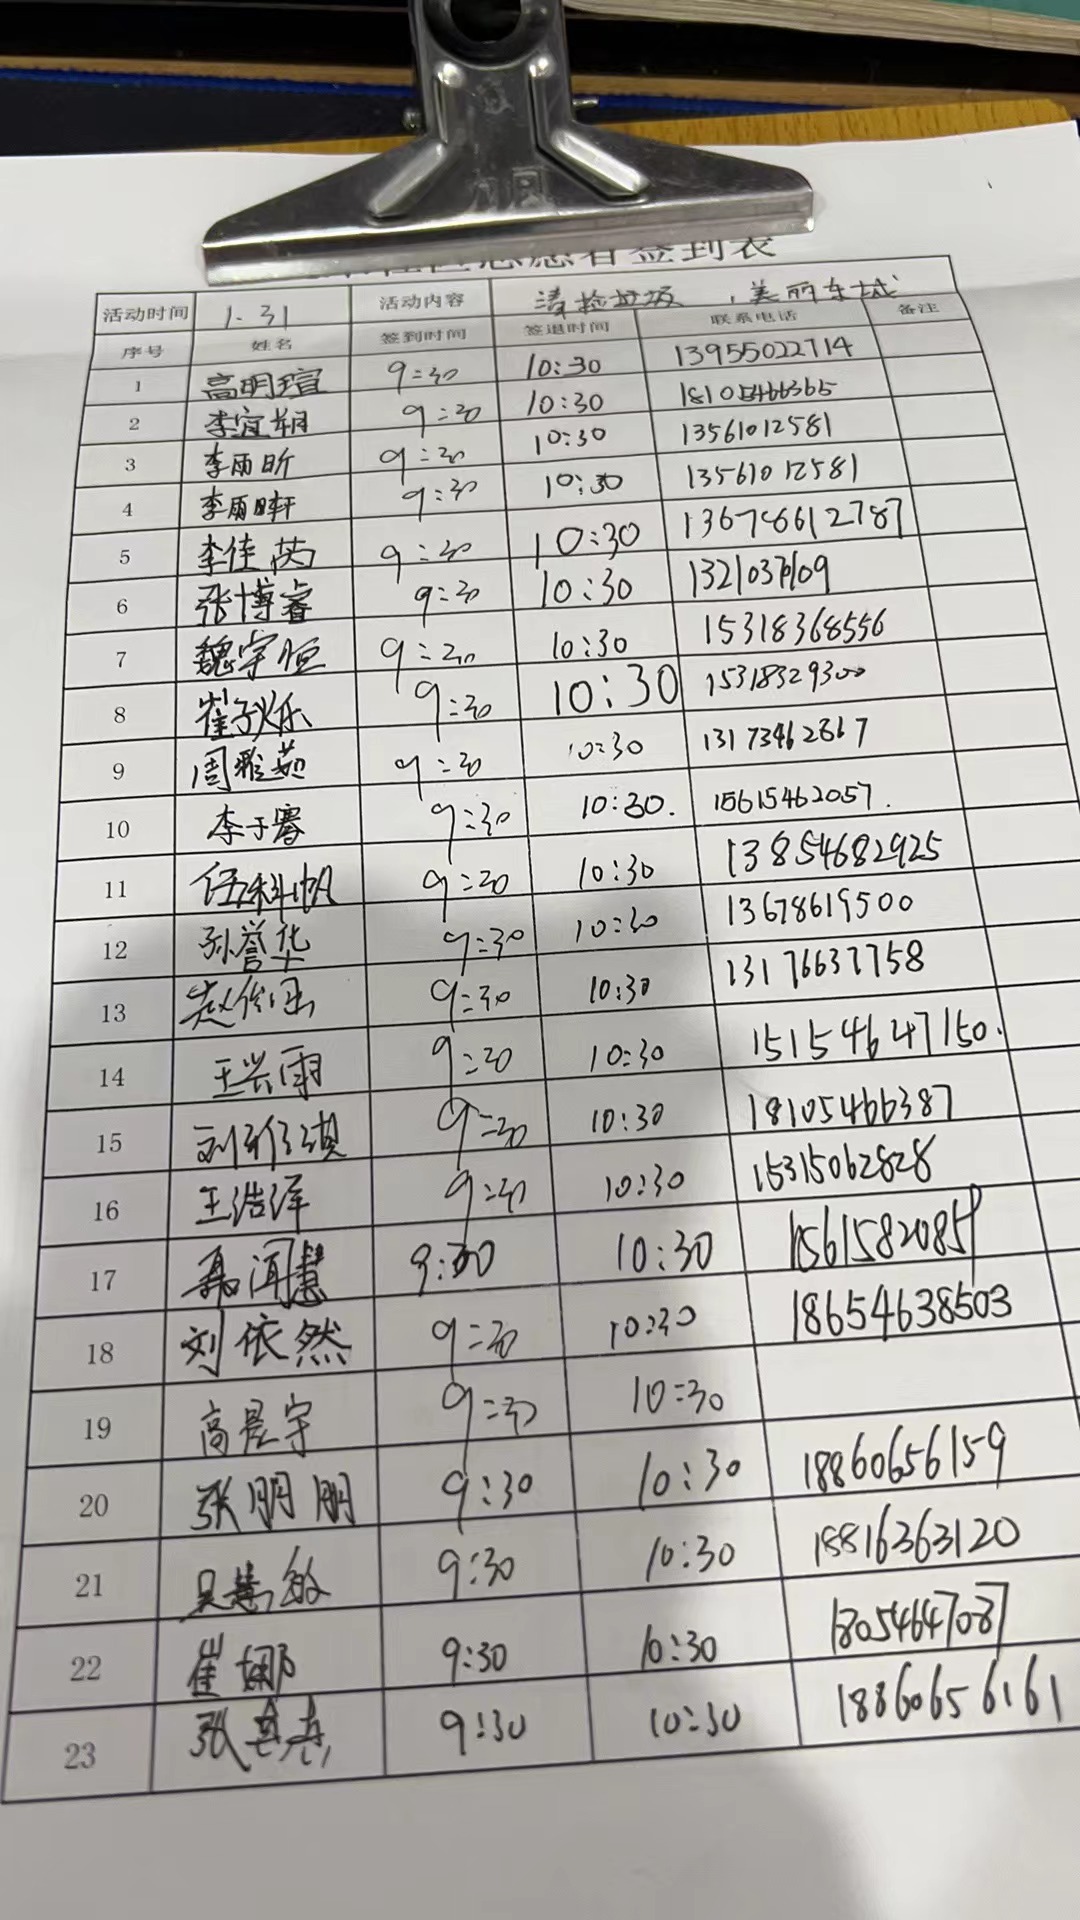 志愿者签到表
活动时间 1.31 活动内容 清捡垃圾,美丽东城
序号 姓名 签到时间 签退时间 联系电话 备注
1 高明瑄 9:30 10:30 13955022714
2 李宜朔 9:30 10:30 18105466365
3 李雨昕 9:30 10:30 13561012581
4 李雨轩 9:30 10:30 13561012581
5 李佳芮 9:30 10:30 136786612787
6 张博睿 9:30 10:30
7 魏宇恒 9:30 10:30 15318368556
8 崔子烁 9:30 10:30 15318329300
9 周雅茹 9:30 10:30 13173462867
10 李于骞 9:30 10:30. 15615462057.
11 伍科帆 9:30 10:30 13854682925
12 孙誉华 9:30 10:30 13678619500
13 9:30 10:30 13176637758
14 王兴雨 9:30 10:30 15154647150.
15 9:30 10:30 18105466387
16 王浩洋 9:30 10:30 15315062828
17 9:30 10:30
18 刘依然 9:30 10:30 18654638503
19 高晨宇 9:30 10:30
20 张朋朋 9:30 10:30 18860656159
21 吴慧敏 9:30 10:30 18816363120
22 崔娜 9:30 10:30 18054647087
23 张 9:30 10:30 18860656161